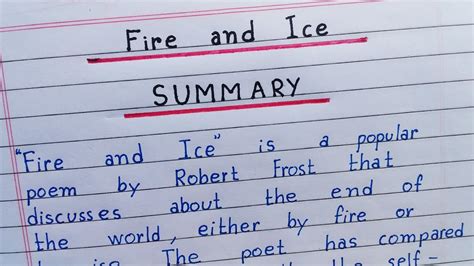 Fire and Ice
SUMMARY
"Fire and Ice" is a popular
poem by Robert Frost that
discusses about the end of
the world, either by fire or
The poet has compared
the self-